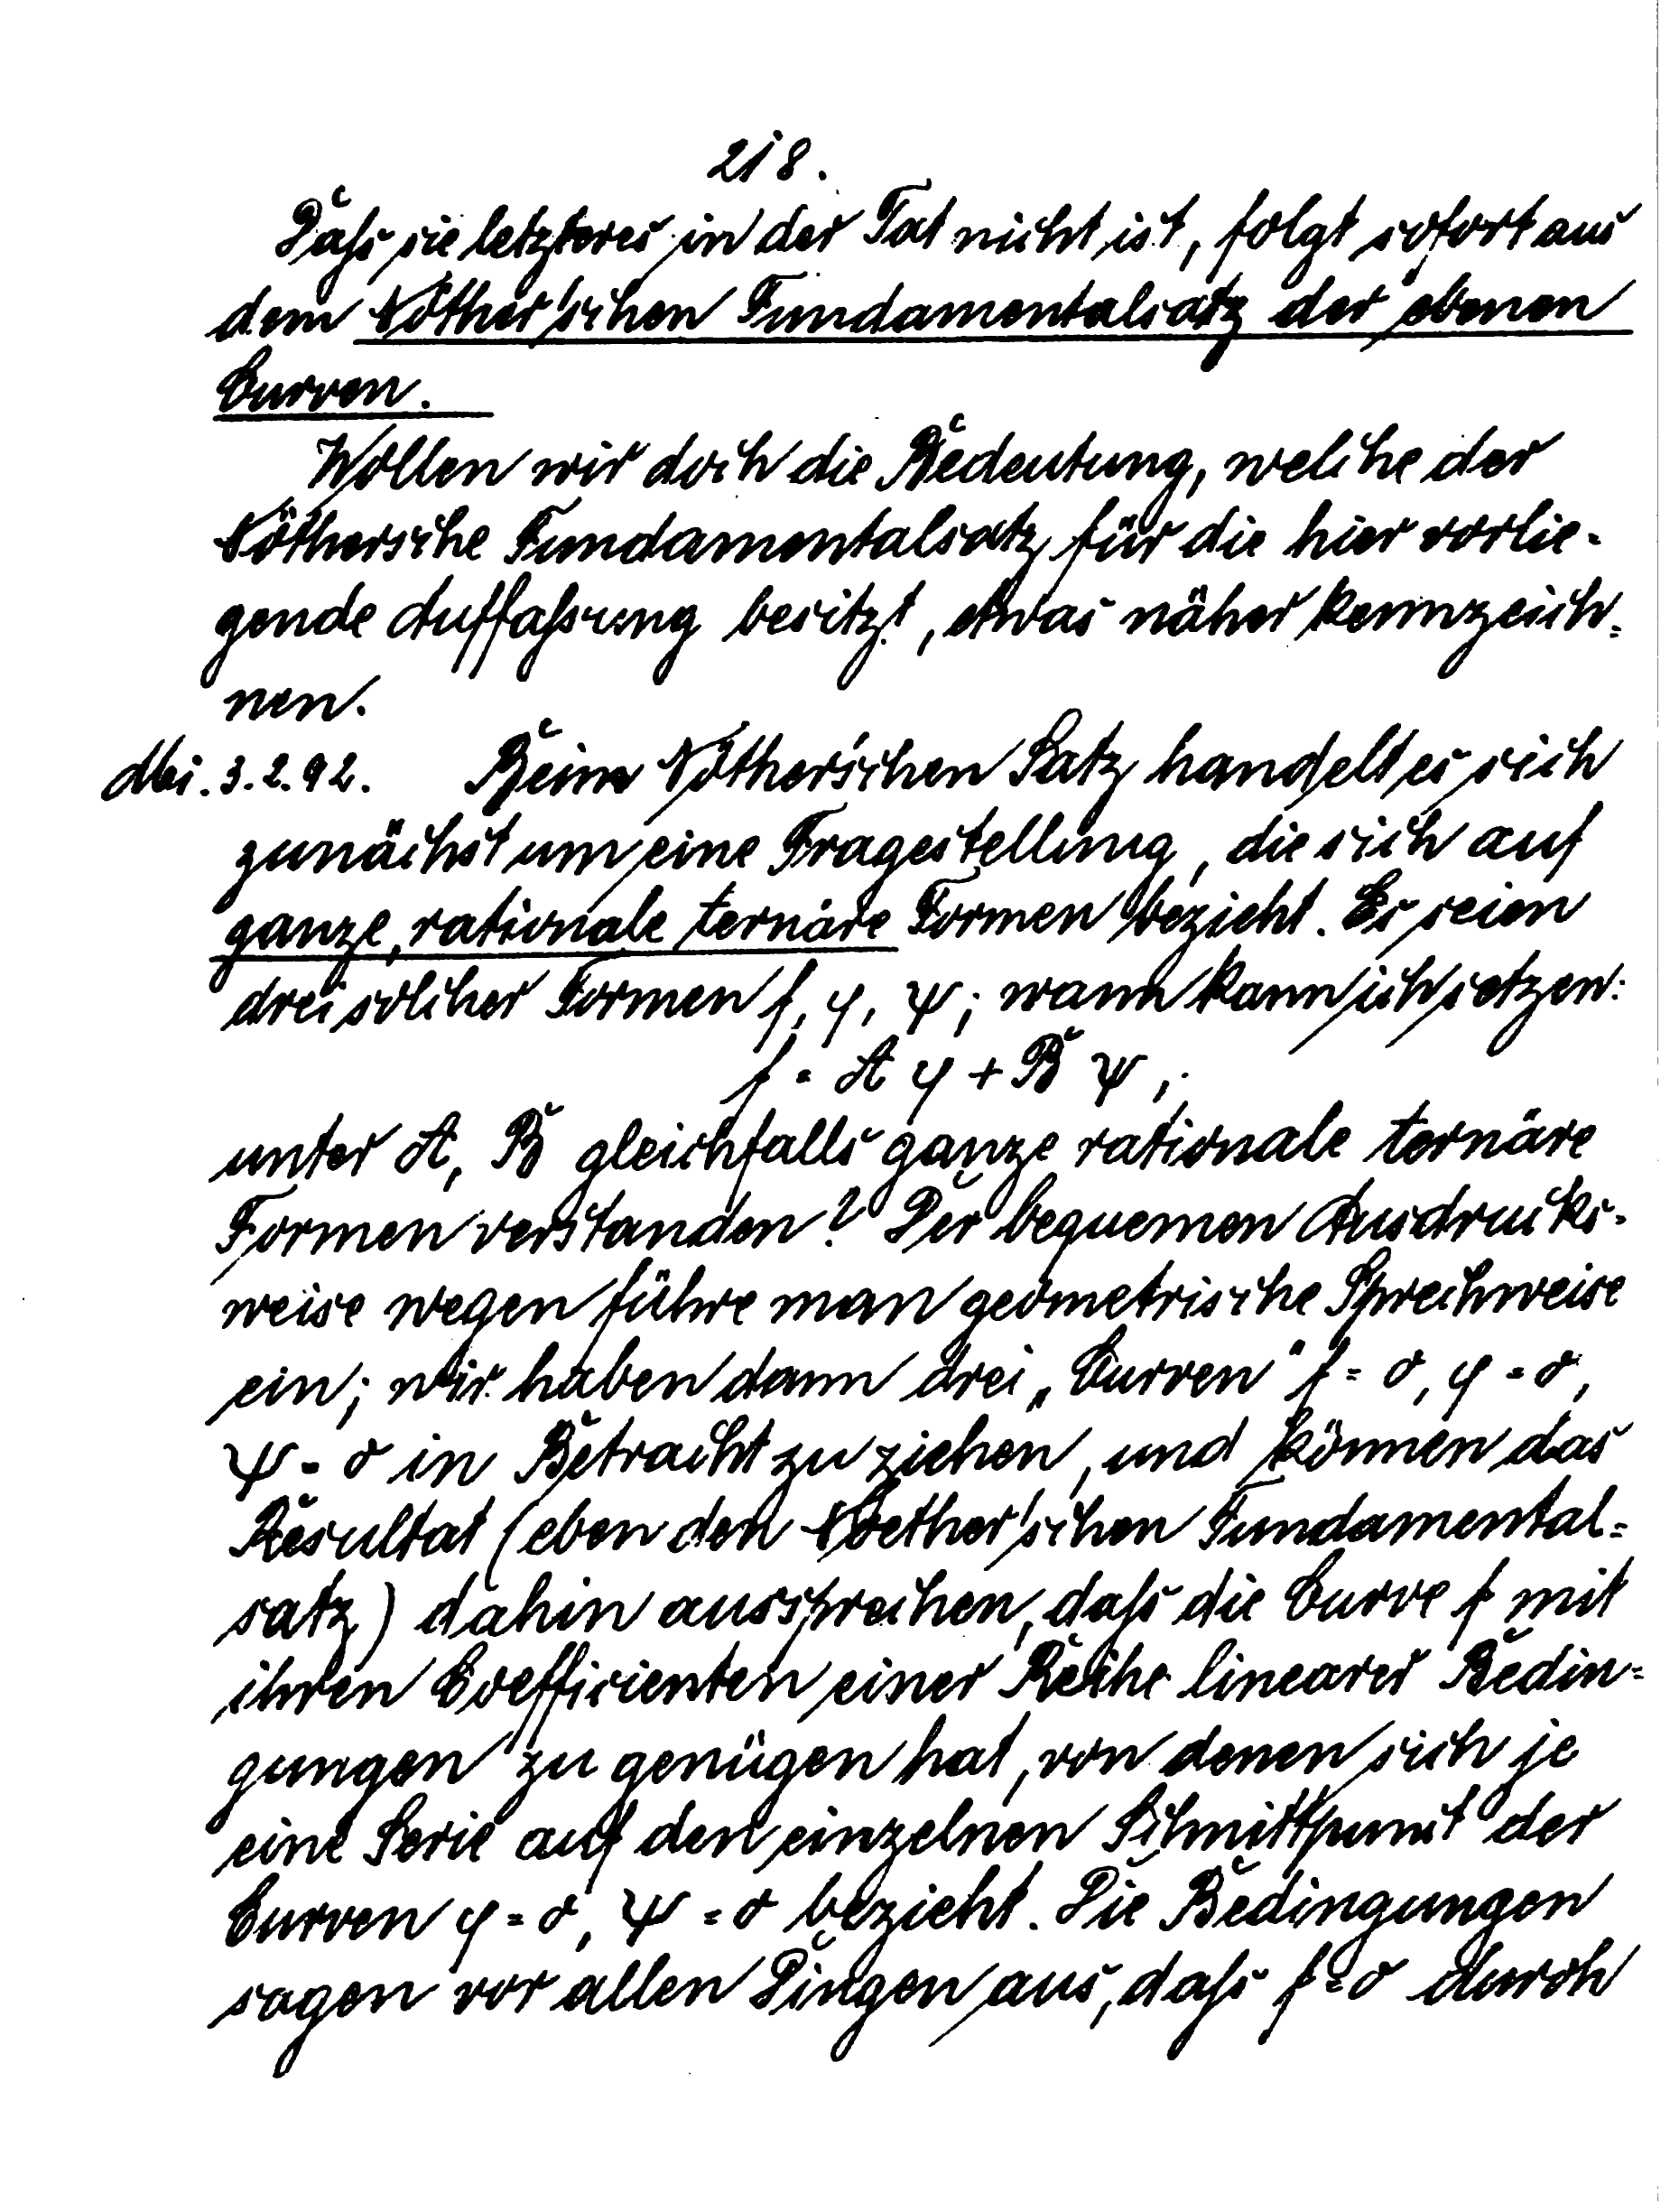 218.
Dass sie letzteres in der Tat nicht ist, folgt sofort aus
dem Nöther'schen Fundamentalsatz der ebenen
Curven.
Wollen wir doch die Bedeutung, welche der
Nöthersche Fundamentalsatz für die hier vorlie-
gende Auffassung besitzt, etwas näher kennzeich-
nen.
Mi. 3.2.92. Beim Nöther'schen Satz handelt es sich
zunächst um eine Fragestellung, die sich auf
ganze, rationale ternäre Formen bezieht. Es seien
drei solcher Formen f, φ, ψ; wann kann ich setzen:
f = A φ + B ψ,
unter A, B gleichfalls ganze rationale ternäre
Formen verstanden? Der bequemen Ausdrucks-
weise wegen führe man geometrische Sprechweise
ein; wir haben dann drei „Curven" f = 0, φ = 0,
ψ = 0 in Betracht zu ziehen, und können das
Resultat (eben den Noether'schen Fundamental-
satz) dahin aussprechen, dass die Curve f mit
ihren Coefficienten einer Reihe linearer Bedin-
gungen zu genügen hat, von denen sich je
eine Serie auf den einzelnen Schnittpunkt der
Curven φ = 0, ψ = 0 bezieht. Die Bedingungen
sagen vor allen Dingen aus, dass f = 0 durch